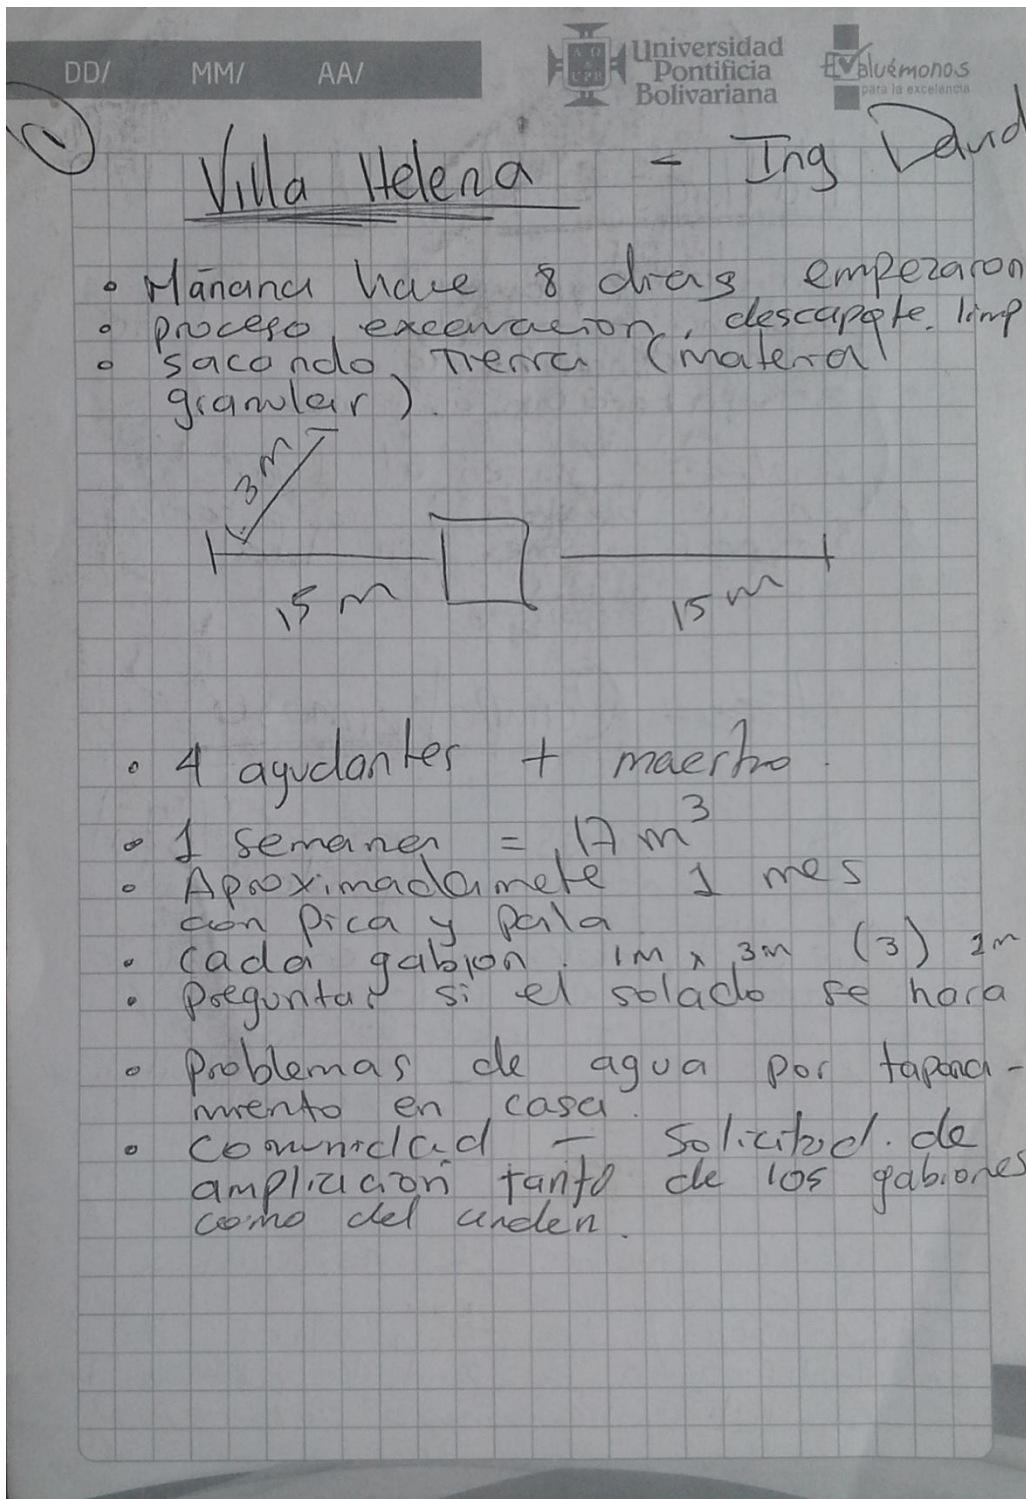 DD/ MM/ AA/
Universidad
Pontificia
Bolivariana
Evaluémonos
para la excelencia
1
Villa Helena - Ing David
• Mañana hace 8 dias empezaron
• proceso excavacion, descapote. limp
• sacando tierra (material
granular).
3m
15 m
15 m
• 4 ayudantes + maestro.
• 1 semana = 17 m³
• Aproximadamete 1 mes
con pica y pala
• Cada gabion. 1m x 3m (3) 1m
• Preguntar si el solado se hara
• Problemas de agua por tapona-
miento en casa.
• Comunidad - Solicitud. de
ampliación tanto de los gabiones
como del anden.